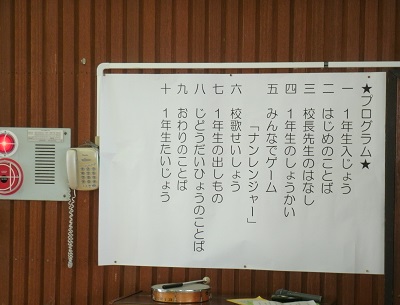 ★プログラム★
一 １年生入じょう
二 はじめのことば
三 校長先生のはなし
四 １年生のしょうかい
五 みんなでゲーム
「ナンレンジャー」
六 校歌せいしょう
七 １年生の出しもの
八 じどうだいひょうのことば
九 おわりのことば
十 １年生たいじょう